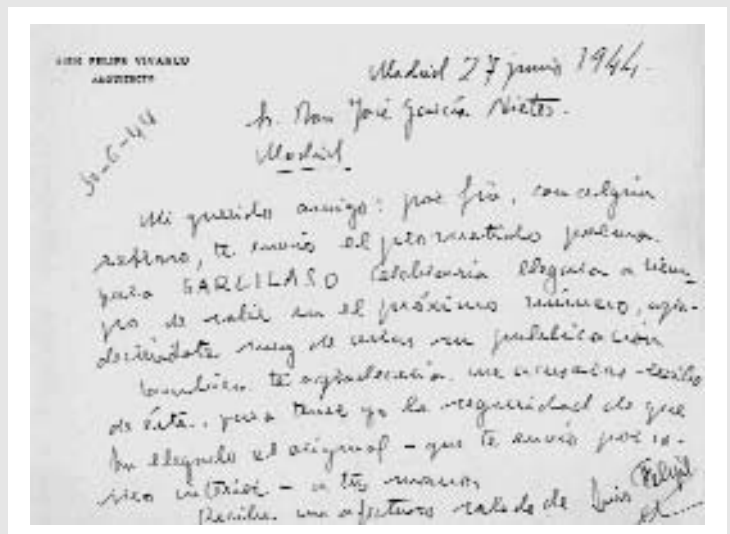 LUIS FELIPE VIVANCO
ARQUITECTO
Madrid 27 junio 1944.
Sr. Don José García Nieto.
Madrid
30-6-44
Mi querido amigo: por fin, con algún
retraso, te envío el prometido poema
para GARCILASO Celebraría llegara a tiem
po de salir en el próximo número, agra-
deciéndote muy de veras su publicación
También te agradecería me acusaras recibo
de ésta, para tener yo la seguridad de que
ha llegado el original - que te envío por co-
rreo interior - a tus manos.
Recibe un afectuoso saludo de Luis Felipe